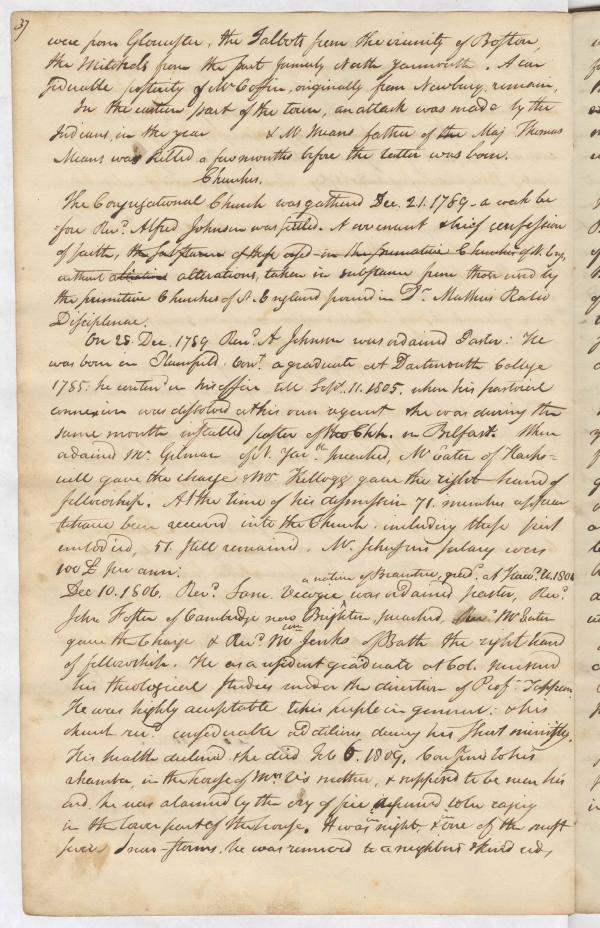 37
were from Glocester, the Talbots from the vicinity of Boston,
the Mitchels from the part formerly North Yarmouth. A con
siderable posterity of Mr Coffin, originally from Newbury, remain,
In the eastern part of the town, an attack was made by the
Indians, in the year & Mr Means father of the Maj Thomas
Means was killed a few months before the latter was born.
Churches.
The Congregational Church was gathered Dec. 21. 1789 - a week be
fore Revd. Alfred Johnson was settled. A covenant & brief confession
of faith, the substance of those used in the primitive Churches of N. Eng.
without alterations, taken in substance from those used by
the primitive Churches of N. England found in Dr. Mathers Ratio
Disciplinae.
On 28. Dec. 1789 Revd. A Johnson was ordained Pastor: He
was born in Plainfield. Cont. a graduate at Dartmouth College
1785: he contend in his office till Sept. 11. 1805. when his pastoral
connexion was dissolved at his own request & he was during the
same month installed pastor of the Chh. in Belfast. When
ordained Mr. Gilman of N. Yar. preached, Mr Eater of Harps-
well gave the charge & Mr. Kellogg gave the right hand of
fellowship. At the time of his dismission 71. members appear
to have been received into the Church, including those first
embodied, 51. still remained. Mr. Johnsons salary was
100 £ per ann:
a native of Braintree, gradd. at Harvd. U. 1801
Dec 10. 1806. Revd. Saml. Veazie was ordained pastor, Revd.
John Foster of Cambridge now Brighton, preached, Revd. Mr Eater
gave the Charge & Revd. Mr Jenks of Bath the right hand
of fellowship. He was a resident graduate at Col. pursued
his theological studies under the direction of Prof. Tappan.
He was highly acceptable to his people in general: & his
church recd. considerable additions during his short ministry.
His health declined & he died Feb 6. 1809. Confined to his
chamber, in the house of Mrs V's mother, & supposed to be near his
end, he was alarmed by the cry of fire, to be raging
in the lower part of the house. It was night, & one of the most
severe Snow-storms. he was removed to a neighbors